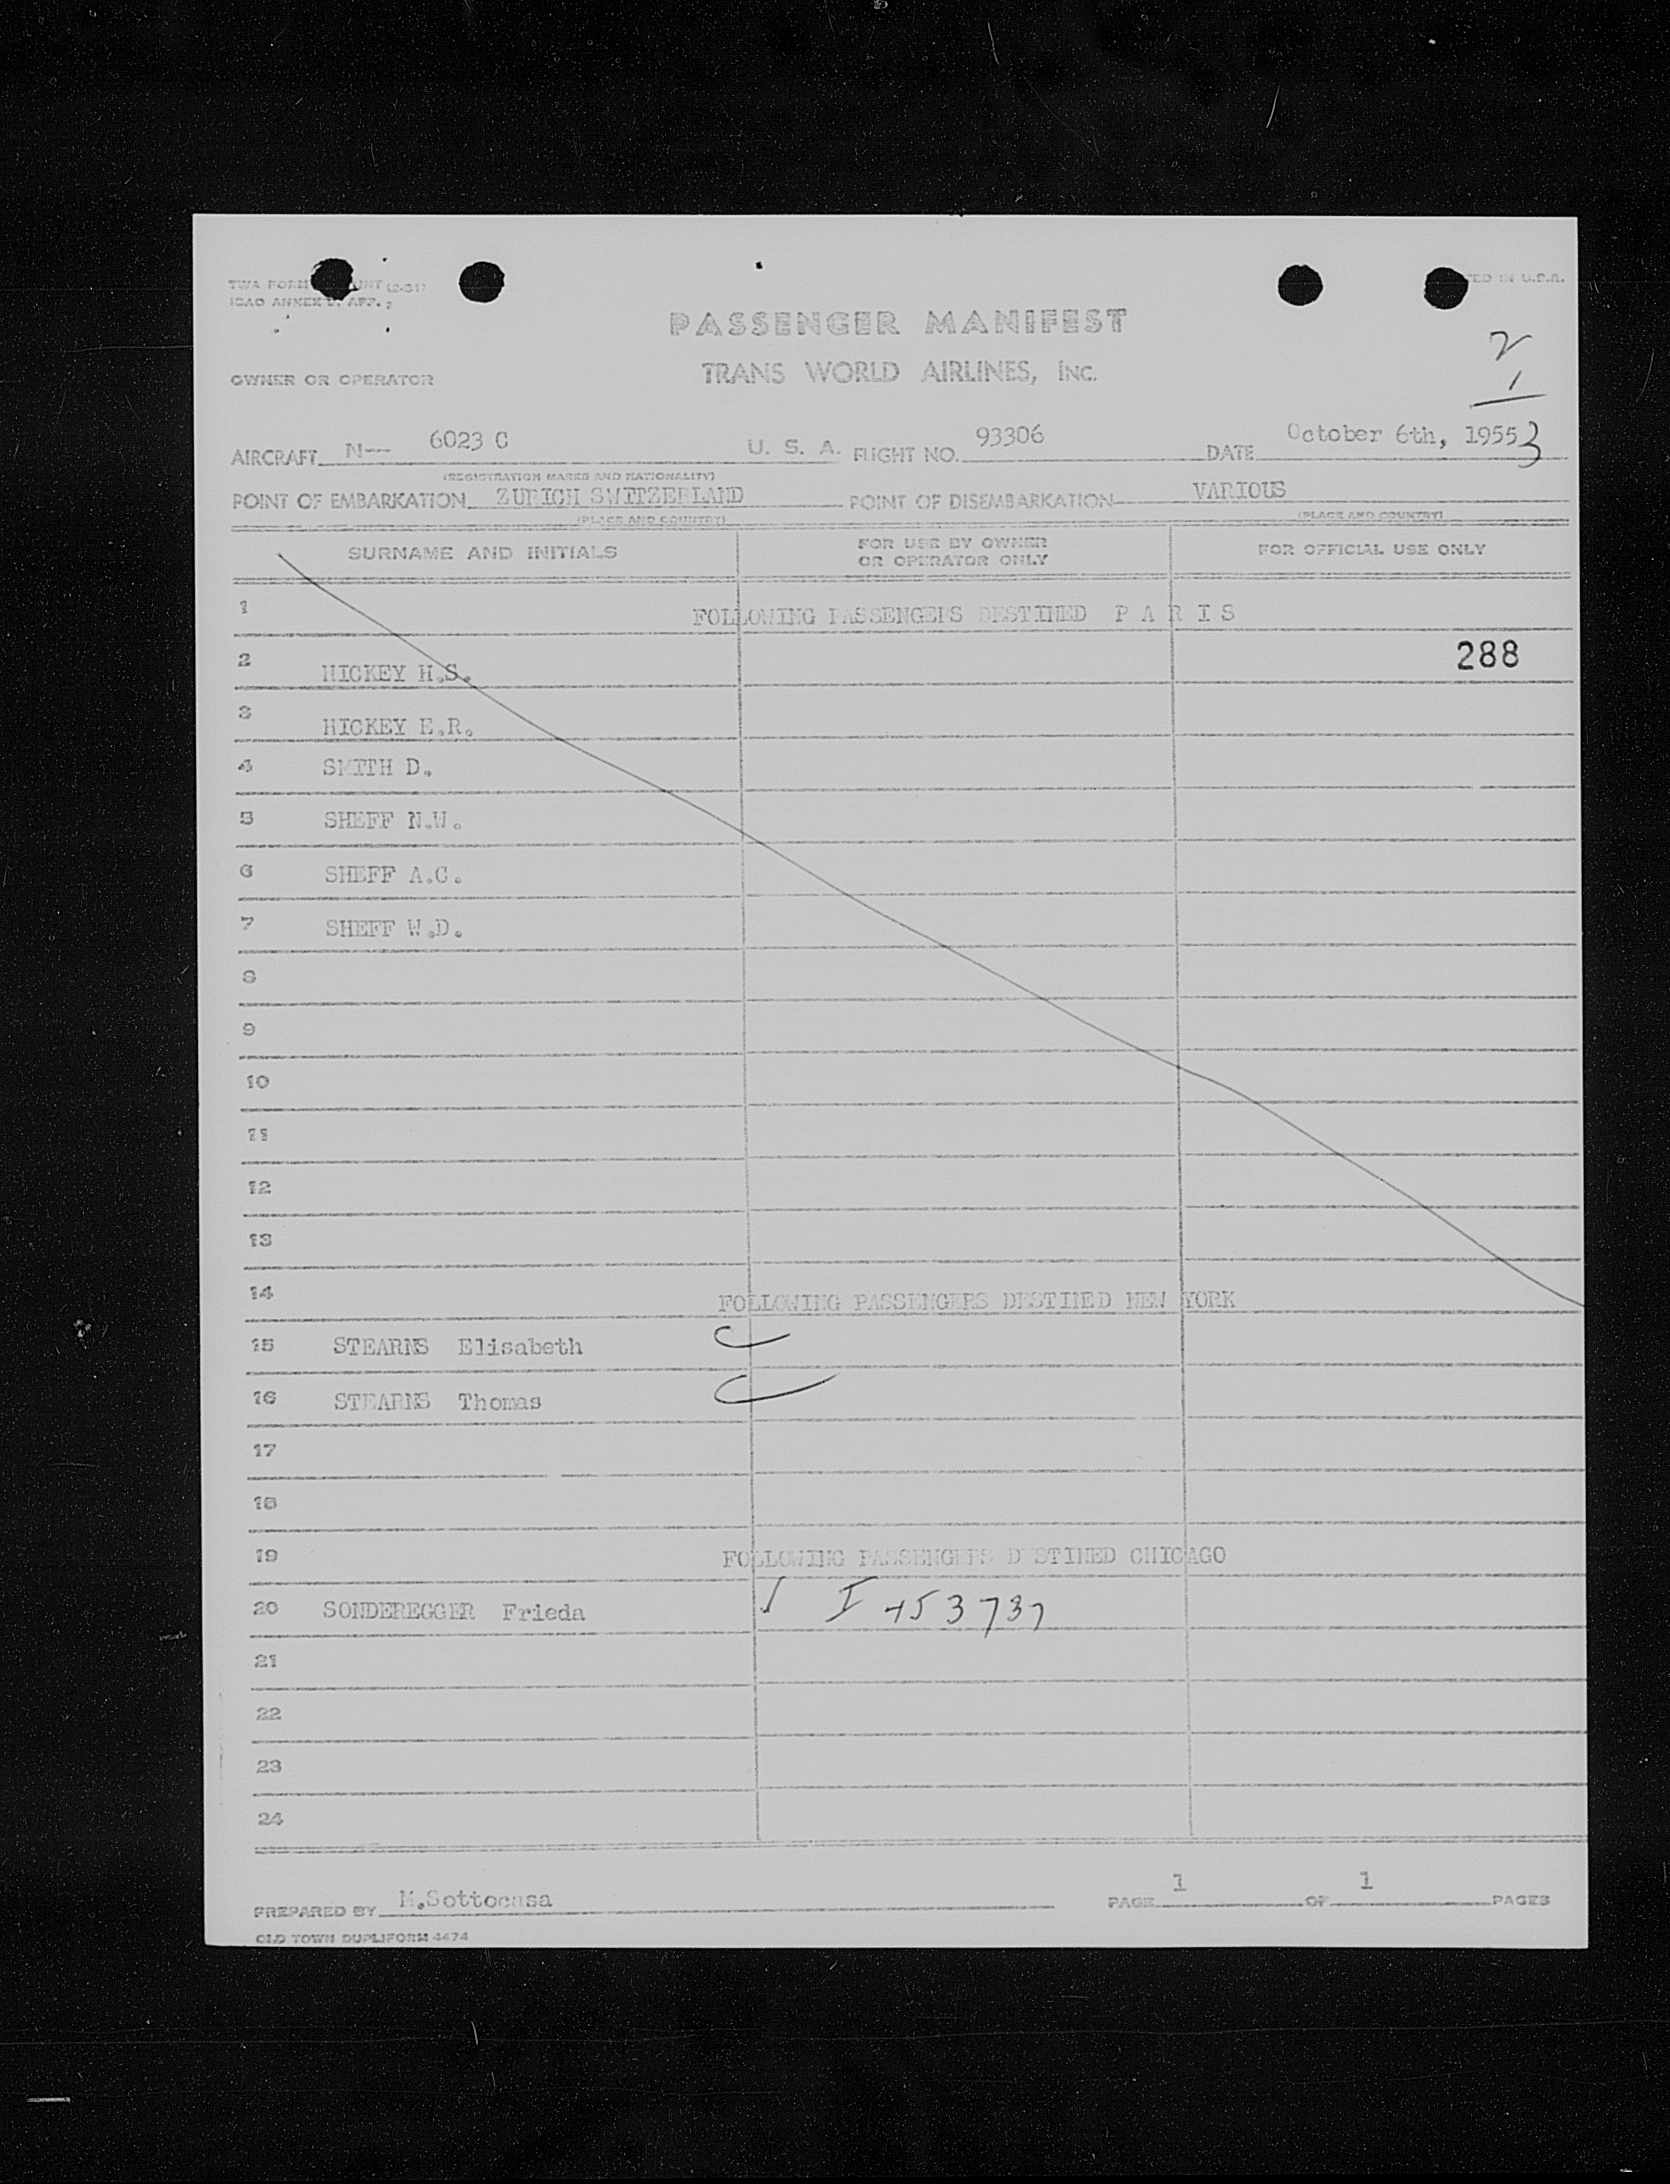 TWA FORM
ICAO ANNEX 9, APP. 2
TED IN U.S.A.
PASSENGER MANIFEST
2
OWNER OR OPERATOR TRANS WORLD AIRLINES, INC.
1
3
AIRCRAFT N-- 6023 C U. S. A. FLIGHT NO. 93306 DATE October 6th, 1955
(REGISTRATION MARKS AND NATIONALITY)
POINT OF EMBARKATION ZURICH SWITZERLAND POINT OF DISEMBARKATION VARIOUS
(PLACE AND COUNTRY) (PLACE AND COUNTRY)
SURNAME AND INITIALS FOR USE BY OWNER OR OPERATOR ONLY FOR OFFICIAL USE ONLY
1 FOLLOWING PASSENGERS DESTINED P A R I S
2 HICKEY H.S. 288
3 HICKEY E.R.
4 SMITH D.
5 SHEFF N.W.
6 SHEFF A.C.
7 SHEFF W.D.
8
9
10
11
12
13
14 FOLLOWING PASSENGERS DESTINED NEW YORK
15 STEARNS Elisabeth
16 STEARNS Thomas
17
18
19 FOLLOWING PASSENGERS DESTINED CHICAGO
20 SONDEREGGER Frieda I 453737
21
22
23
24
PREPARED BY M.Sottocasa PAGE 1 OF 1 PAGES
OLD TOWN DUPLIFORM 4474